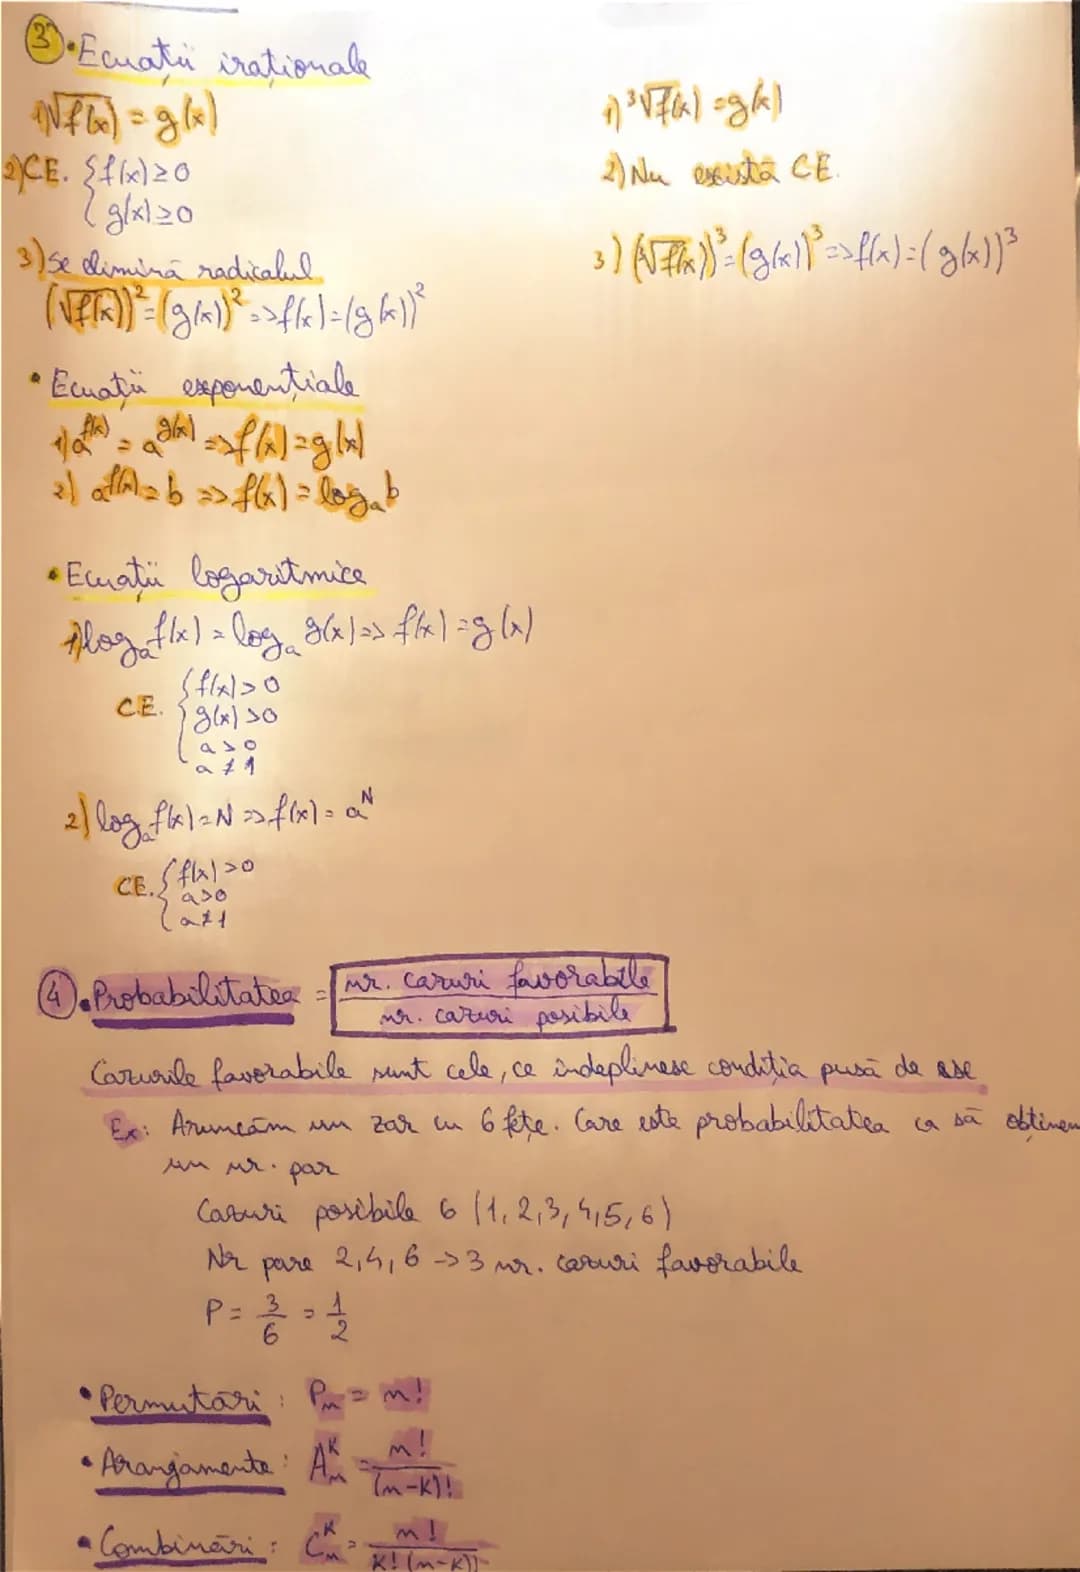 3 • Ecuații iraționale
1) √f(x) = g(x)
2) C.E. { f(x) ≥ 0
{ g(x) ≥ 0
3) Se elimină radicalul
(√f(x))² = (g(x))² => f(x) = (g(x))²
1) ³√f(x) = g(x)
2) Nu există C.E.
3) (³√f(x))³ = (g(x))³ => f(x) = (g(x))³
• Ecuații exponențiale
1) a^f(x) = a^g(x) => f(x) = g(x)
2) a^f(x) = b => f(x) = logₐ b
• Ecuații logaritmice
1) logₐ f(x) = logₐ g(x) => f(x) = g(x)
C.E. { f(x) > 0
g(x) > 0
a > 0
a ≠ 1
2) logₐ f(x) = N => f(x) = a^N
C.E. { f(x) > 0
a > 0
a ≠ 1
4 • Probabilitatea = nr. cazuri favorabile
nr. cazuri posibile
Cazurile favorabile sunt cele, ce îndeplinesc condiția pusă de ele
Ex: Aruncăm un zar cu 6 fețe. Care este probabilitatea ca să obținem
un nr. par
Cazuri posibile 6 (1, 2, 3, 4, 5, 6)
Nr pare 2, 4, 6 -> 3 nr. cazuri favorabile
P = 3/6 = 1/2
• Permutări : Pₙ = n!
• Aranjamente : Aₙ^K = n! / (n-K)!
• Combinări : Cₙ^K = n! / K! (n-K)!